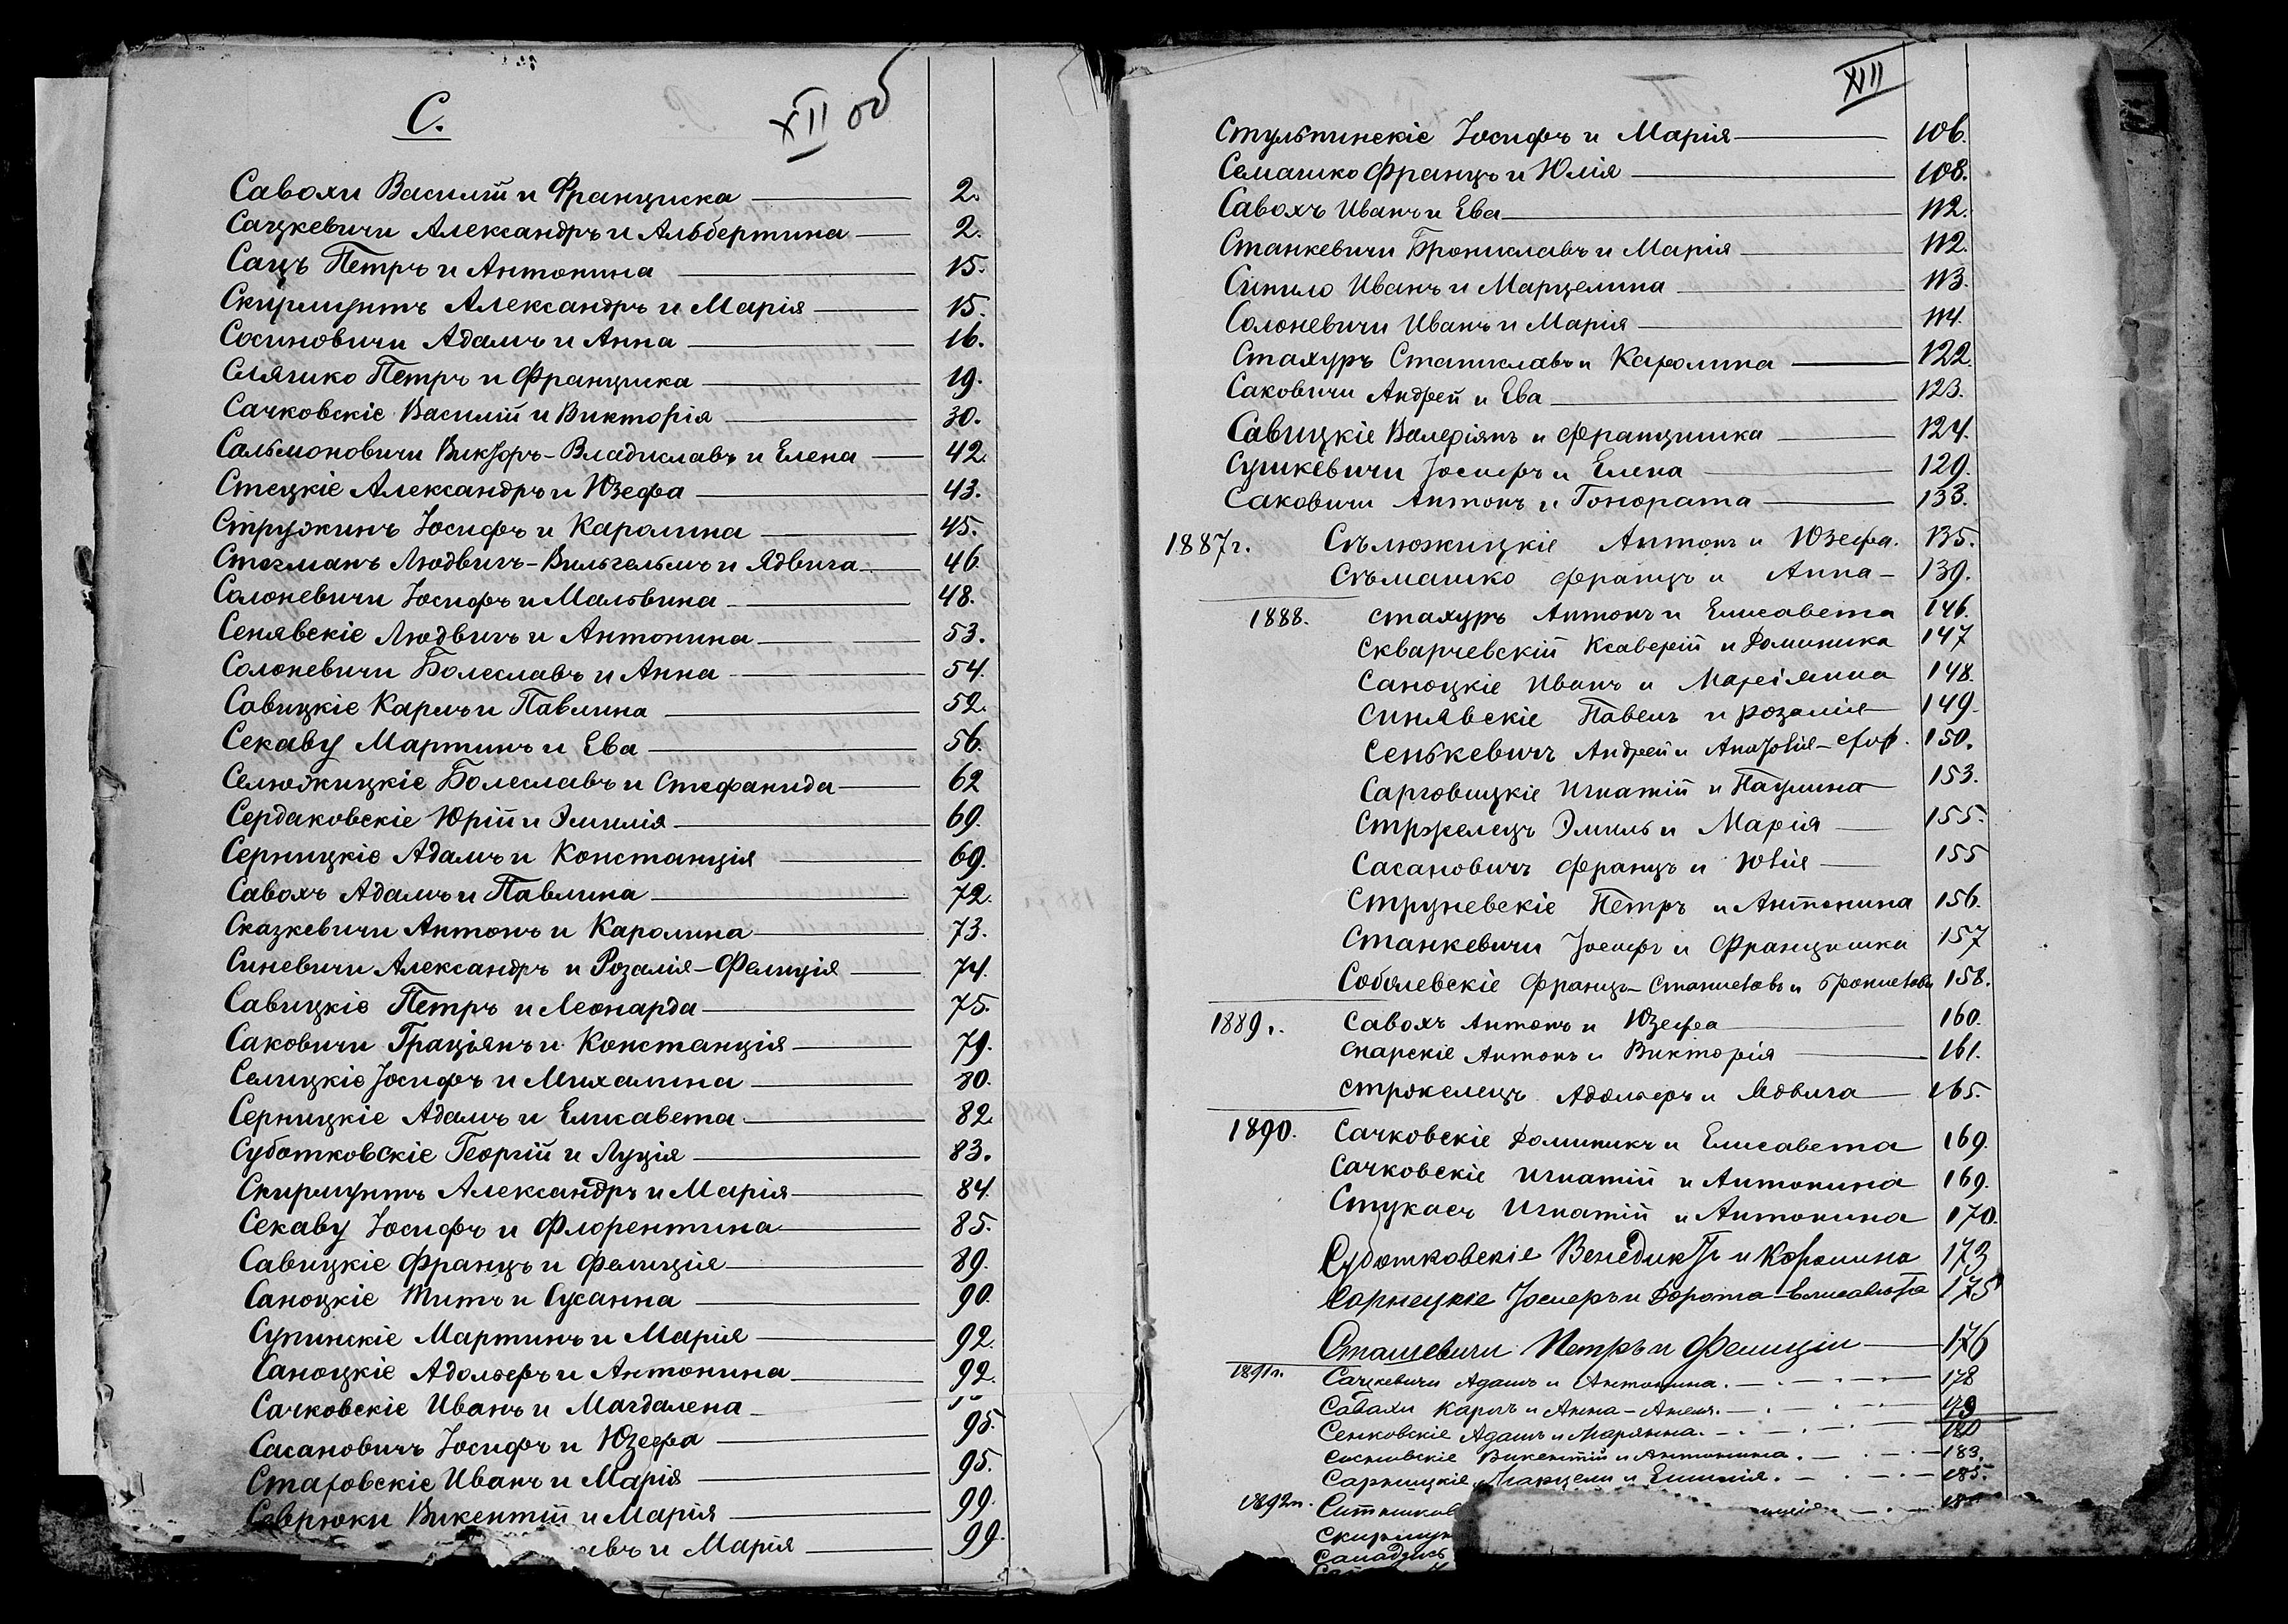 С.
XII об
Савохи Василій и Франциска 2.
Сацкевичи Александръ и Альбертина 2.
Сацъ Петръ и Антонина 15.
Скирмунтъ Александръ и Марія 15.
Сосиновичи Адамъ и Анна 16.
Слягшко Петръ и Франциска 19.
Сачковскіе Василій и Викторія 30.
Сальмоновичи Викторъ-Владиславъ и Елена 42.
Стецкіе Александръ и Юзефа 43.
Стружинъ Іосифъ и Каролина 45.
Стегманъ Людвигъ-Вильгельмъ и Ядвига 46
Солоневичи Іосифъ и Мальвина 48.
Сенявскіе Людвигъ и Антонина 53.
Солоневичи Болеславъ и Анна 54.
Савицкіе Карлъ и Павлина 52.
Секаву Мартинъ и Ева 56.
Селюжицкіе Болеславъ и Стефанида 62
Сердаковскіе Юрій и Эмилія 69.
Серницкіе Адамъ и Констанція 69.
Савохъ Адамъ и Павлина 72.
Сказкевичи Антонъ и Каролина 73.
Синевичи Александръ и Розалія-Фелиція 74.
Савицкіе Петръ и Леонарда 75.
Саковичи Граціянъ и Констанція 79.
Селицкіе Іосифъ и Михалина 80.
Серницкіе Адамъ и Елисавета 82.
Суботковскіе Георгій и Луція 83.
Скирмунтъ Александръ и Марія 84.
Секаву Іосифъ и Флорентина 85.
Савицкіе Францъ и Фелиція 89.
Саноцкіе Титъ и Сусанна 90.
Супинскіе Мартинъ и Марія 92.
Саноцкіе Адольфъ и Антонина 92.
Сачковскіе Иванъ и Магдалена
Сасановичъ Іосифъ и Юзефа 95.
Стаховскіе Иванъ и Марія 95.
Саврюки Викентій и Марія 99.
ивъ и Марія 99.
XIII
Стульпинскіе Іосифъ и Марія 106.
Семашко Францъ и Юлія 108.
Савохъ Иванъ и Ева 112.
Станкевичи Брониславъ и Марія 112.
Сипило Иванъ и Марцелина 113.
Солоневичи Иванъ и Марія 114.
Стахуръ Станиславъ и Каролина 122.
Саковичи Андрей и Ева 123.
Савицкіе Валеріянъ и Францишка 124.
Сушкевичи Іосифъ и Елена 129.
Саковичи Антонъ и Гонората 133.
1887г. Сѣлюжицкіе Антонъ и Юзефа. 135.
Сѣмашко Францъ и Анна 139.
1888. Стахуръ Антонъ и Елисавета 146.
Скварчевскій Ксаверій и Доминика 147
Саноцкіе Иванъ и Марсіянна 148.
Синявскіе Павелъ и Розалія 149.
Сенькевичъ Андрей и Анатолія 150.
Сарговицкіе Игнатій и Паулина 153.
Стржелецъ Эмиль и Марія 155.
Сасановичъ Францъ и Юлія 155
Струневскіе Петръ и Антонина 156.
Станкевичи Іосифъ и Францишка 157
Соболевскіе Францъ-Станиславъ и Бронислава 158.
1889г. Савохъ Антонъ и Юзефа 160.
Снарскіе Антонъ и Викторія 161.
Стржелецъ Адольфъ и Ядвига 165.
1890. Сачковскіе Доминикъ и Елисавета 169.
Сачковскіе Игнатій и Антонина 169.
Стукасъ Игнатій и Антонина 170.
Суботковскіе Венедиктъ и Каролина 173
Сарнецкіе Іосифъ и Дорота-Елисавета 175
Сташевичи Петръ и Фелиція 176
1891г. Сацкевичи Адамъ и Антонина. 178
Савохи Карлъ и Анна-Анеля. 179
Сенковскіе Адамъ и Марянна. 180
Сосновскіе Викентій и Антонина. 183.
Сарницкіе Марцели и Емилія. 185.
1892г. Ситников
Скирмун